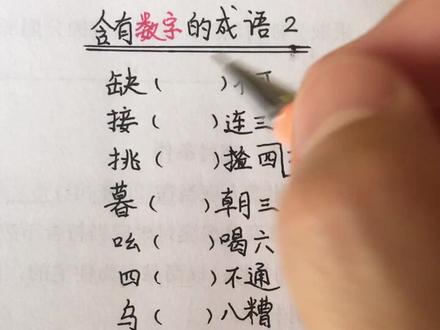 含有数字的成语2
缺（ ）不
接（ ）连三
挑（ ）捡四
暮（ ）朝三
吆（ ）喝六
四（ ）不通
乌（ ）八糟